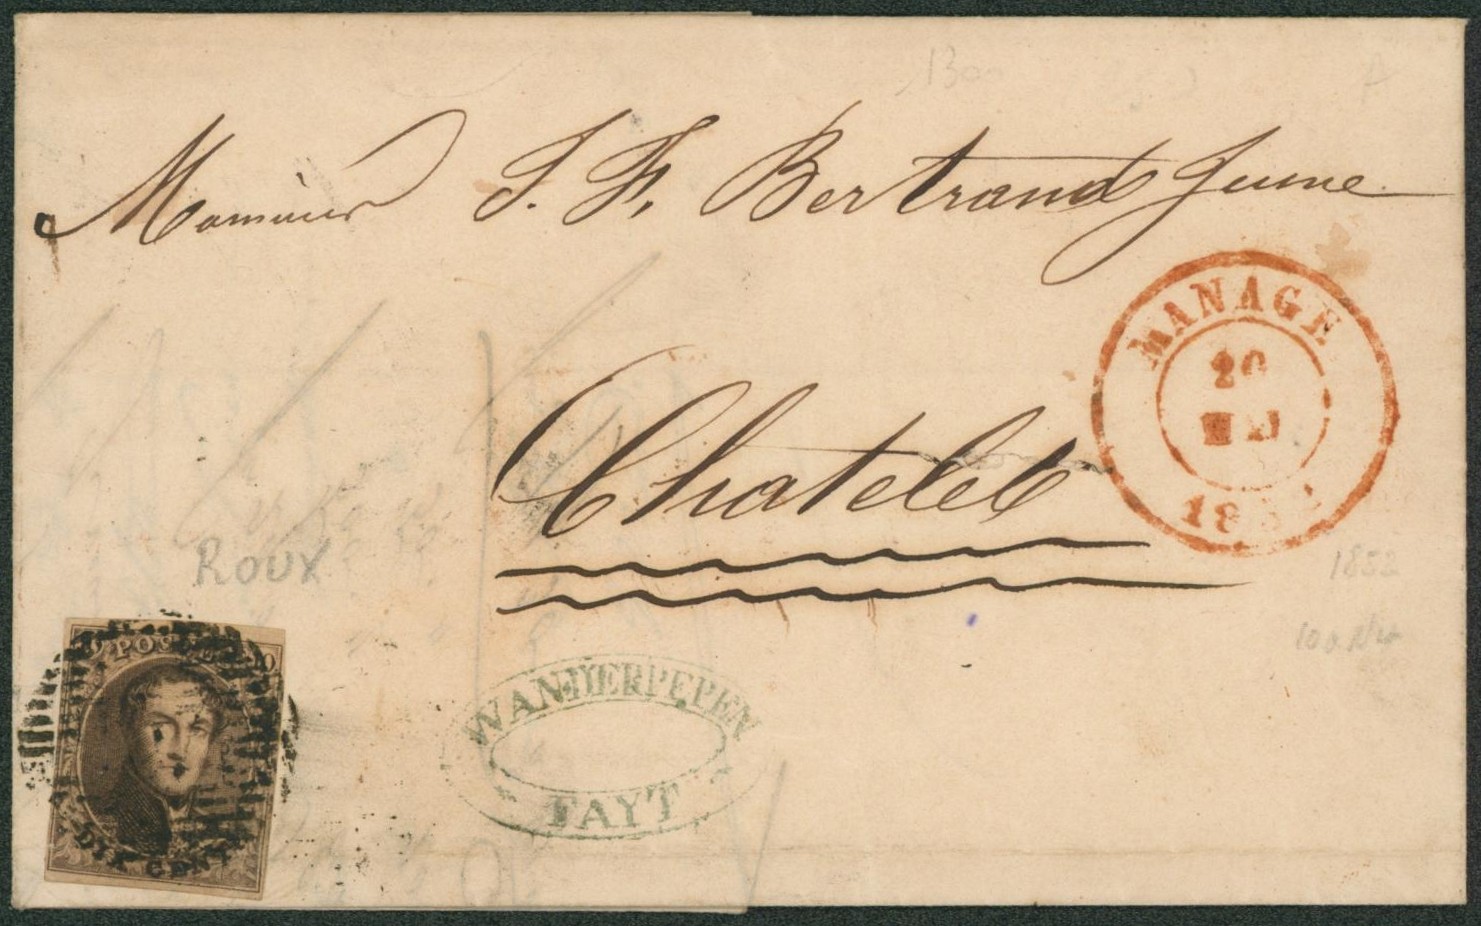 1300
A
Monsieur J. F. Bertrand Jeune
MANAGE
20
MAI
Chatelet
ROUX
1852
POSTES
DIX CENT
WANDERPEPEN
FAYT